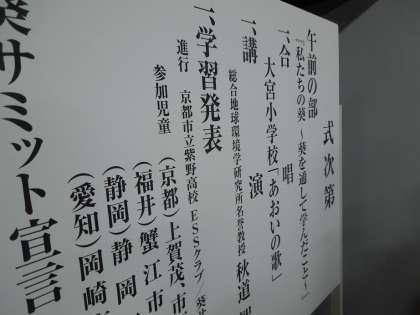 式次第
午前の部
『私たちの葵 ～葵を通して学んだこと～』
一、合 唱
大宮小学校「あおいの歌」
一、講 演
総合地球環境学研究所名誉教授 秋道
一、学習発表
進行 京都市立紫野高校 ESSクラブ/葵
参加児童
(京都)上賀茂、市
(福井)蟹江市
(静岡)静岡
(愛知)岡崎
葵サミット宣言